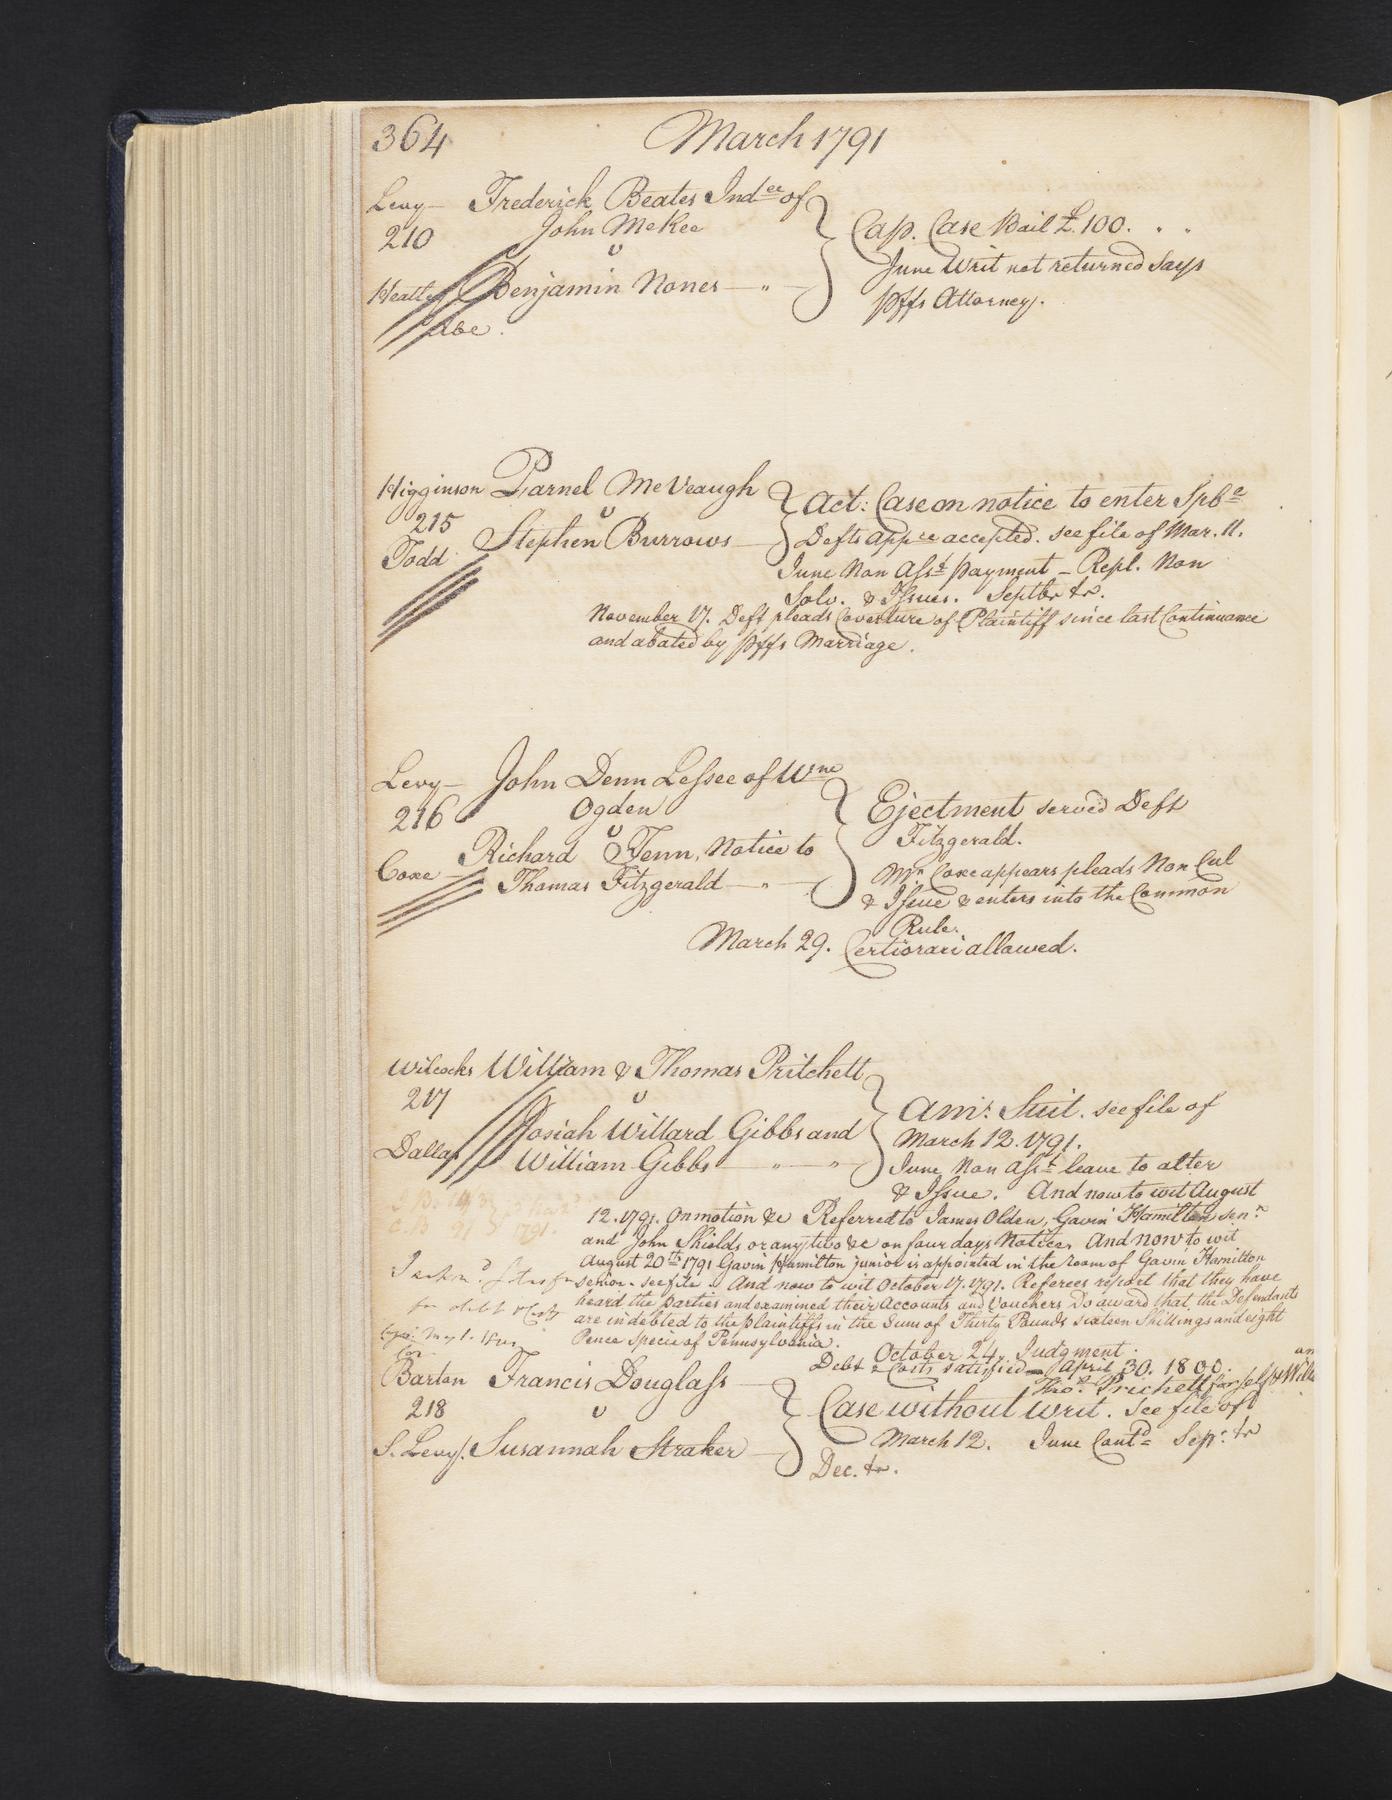 364 March 1791
Levy — Frederick Beates Ind.ee of
210 John McKee
v
Heatly Benjamin Nones — " —
abe.
Cap. Case Bail £.100. . .
June Writ not returned says
Pffs Attorney.
Higginson Parnel McVeaugh
215 v
Todd Stephen Burrows —
Act: Case on notice to enter Spb.e
Defts app.ce accepted. see file of Mar. 11.
June Non Ass.t payment — Repl. Non
Solv. & Issues. Septbr tr.
November 17. Deft pleads Coverture of Plaintiff since last Continuance
and abated by Pffs Marriage.
Levy — John Denn Lessee of Wm
216 Ogden
v
Richard Fenn, Notice to
Coxe — Thomas Fitzgerald — " —
Ejectment served Deft
Fitzgerald.
Mr. Coxe appears pleads Non Cul
& Issue & enters into the Common
Rule.
March 29. Certiorari allowed.
Wilcocks William & Thomas Pritchett
217 v
Josiah Willard Gibbs and
Dallas William Gibbs — " — "
Ami: Suit. see file of
March 12. 1791.
June Non Ass.t leave to alter
& Issue. And now to wit August
12. 1791. On motion &c Referred to James Olden, Gavin Hamilton sen.r
and John Shields or any two &c on four days Notice. And now to wit
August 20th 1791 Gavin Hamilton junior is appointed in the room of Gavin Hamilton
senior. see file. And now to wit October 17. 1791. Referees report that they have
heard the parties and examined their Accounts and Vouchers Do award that the Defendants
are indebted to the plaintiffs in the Sum of Thirty Pounds sixteen Shillings and eight
Pence Specie of Pennsylvania.
October 24, Judgment.
Debt & Costs satisfied — April 30. 1800.
Tho.s Prichett for self &
for debt & Costs
Barton Francis Douglass —
218 v
S. Levy. Susannah Straker —
Case without writ. See file of
March 12. June Cont.d Sep.r tr
Dec. tr.